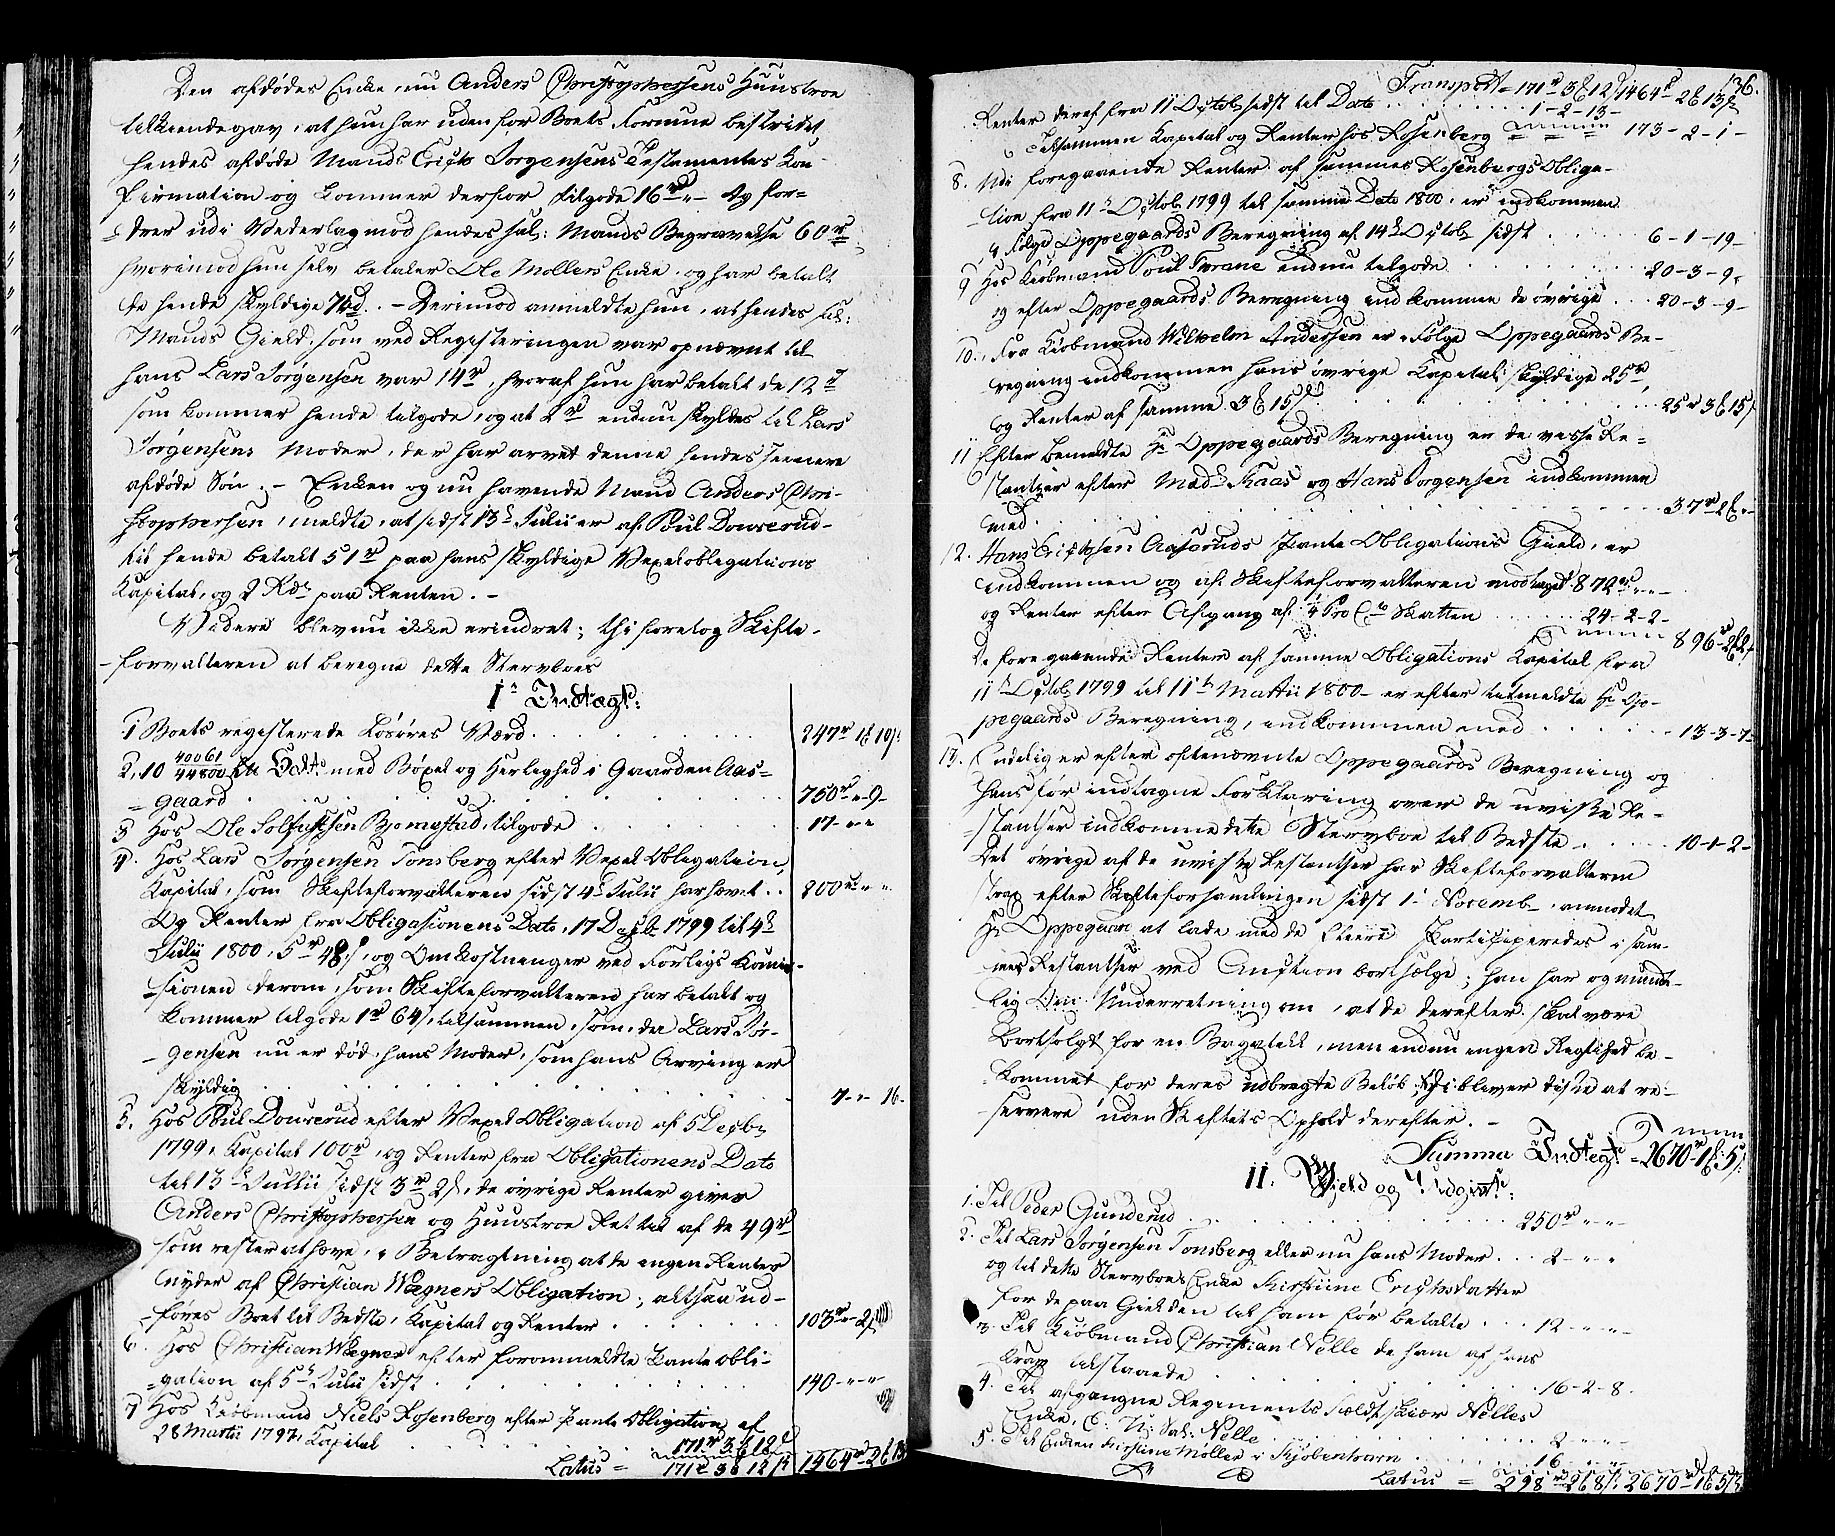 Den afdødes Enke, nu Anders Christophersens Huustroe
tilkiendegav, at hun har uden for Boets Formue bestridt
hendes afdøde Mands Erich Jørgensens Testamentes Kon-
firmation og kommer derfor tilgode 16 rd - Og for-
drer udi Vederlag mod hendes sal: Mands Begravelse 60 rd
hvorimod hun selv betaler Ole Møllers Enke, og har betalt
de hende skyldige 74 . - Derimod anmeldte hun, at hendes sal:
Mands Gield, som ved Registeringen var opnævnt til
hans Lars Jørgensen var 14 rd, hvoraf hun har betalt de 12 rd
som kommer hende tilgode, og at 2 rd endnu skyldes til Lars
Jørgensens Moder, der har arvet denne hendes senere
afdøde Søn. - Enken og nu havende Mand Anders Chri-
stophersen, meldte, at sidst 13de Julii er af Poul Douserud
til hende betalt 51 rd paa hans skyldige Vexelobligations
Kapital, og 2 Rdr paa Renten. -
Videre blev nu ikke erindret; thi foretog Skifte-
forvalteren at beregne dette Sterboes
I: Indtægt:
1 Boets registerede Løsøres Værd . . . 247 rd 1 10
2, 10 40061/44800 med Bøxel og Herlighed i Gaarden Aas-
gaard . . . 750 rd - 9 -
3 Hos Ole Bjørnestad, tilgode . . . 17 - " "
4. Hos Lars Jørgensen Tønsberg efter Vexel Obligation,
Kapital, som Skifteforvalteren sidst 4de Julii har hævet . . 200 rd " "
Og Renter fra Obligasionens Dato, 17 Decbr 1799 til 4de
Julii 1800, 5 rd 48 s, og Omkostninger ved Forligs Kommis-
sionen derom, som Skifteforvalteren har betalt og
kommer tilgode 1 rd 64 s, tilsammen, som, da Lars Jør-
gensen nu er død, hans Moder, som hans Arving er
skyldig . . . 7 - " 16 -
5. Hos Poul Douserud efter Vexel Obligation af 5 Decbr
1799, Kapital 100 rd, og Renter fra Obligationens Dato
til 13de Julii sidst 3 rd 2 s, de øvrige Renter giver
Anders Christophersen og Huustroe Ret til af de 49 rd
som rester at hæve, i Betragtning at de ingen Renter
nyder af Christian Wegners Obligation; altsaa ud-
føres Boet til Bedste, Kapital og Renter . . . 103 rd - 2
6. Hos Christian Wegner efter forommeldte Pante obli-
gation af 5te Julii sidst . . . 140 - " "
7 Hos Kiøbmand Niels Rosenberg efter Pante Obligation af
28 Martii 1797, Kapital . . . 171 rd 3 12
Latus = 171 rd 3 12 1464 rd 2 13
136.
Transport = 171 rd 3 12 1464 rd 2 13
Renter deraf fra 11 Octob sidst til Dato . . . 1 - 2 - 13 -
Tilsammen Kapital og Renter hos Rosenberg 173 - 2 - 1 -
8. Udi foregaaende Renter af sammes Rosenbergs Obliga-
tion fra 11te Octob. 1799 til samme Dato 1800. er indkommen
Følge Oppegaards Beregning af 14de Octob sidst . . . 6 - 1 - 19 -
9 Hos Kiøbmand Poul Trane endnu tilgode . . . 20 - 3 - 9 -
og efter Oppegaards Beregning indkomme de øvrige . . . 20 - 3 - 9 -
10. Fra Kiøbmand Wilhelm Andersen er i Følge Oppegaards Be-
regning indkommen hans øvrige Kapital skyldige 25 rd,
og Renter af samme 3 15 . . . 25 rd 3 15
11 Efter bemeldte Hr Oppegaards Beregning er de visse Re-
stantser efter Mad. Kaas og Hans Jørgensen indkommen
med . . . 37 rd 2 -
12. Hans Erichsen Aaseruds Pante Obligations Gield, er
indkommen og af Skifteforvalteren modtaget 872 rd - -
og Renter efter Afgang af 1/4 Pro Cto Skatten . . . 24 - 2 - 2 -
896 rd 2 2
De foregaaende Renter af samme Obligations Kapital fra
11te Octob 1799 til 11te Martii 1800 - er efter bemeldte Hr Op-
pegaards Beregning, indkommen med . . . 13 - 3 - 7 -
13. Endelig er efter oftenævnte Oppegaards Beregning og
hans før indtagne Forklaring over de uvisse Re-
stantser indkomme dette Sterboe til Bedste . . . 10 - 1 - 2 -
Det øvrige af de uvisse Restantser har Skifteforvalteren
strax efter Skifteforsamlingen sidst 1te Novemb. anmodet
Hr Oppegaard at lade med de fleere Participerendes i sam-
mes Restantser ved Auction bortsælge; han har og mundt-
lig Underretning om, at de derefter skal være
bortsolgt for en Bagatell, men endnu ingen Rigtighed be-
kommet for deres udbragte Beløb, thi bliver disse at re-
servere uden Skiftets Ophold derefter. -
Summa Indtægt = 2670 rd 1 5
II. Gield og Udgivt:
1. Til Peder Gunderud . . . 250 rd " "
2. Til Lars Jørgensen Tønsberg eller nu hans Moder . . . 2 - " "
og til dette Sterboes Enke Kirstine Erichsdatter
for de paa Gielden til ham før betalte . . . 12 - " "
3. Til Kiøbmand Christian Nelle de ham af hans
Krav tilstaaede . . . 16 - 2 - 8.
4. Til afgangne Regiments Feldtskiær Nelles
Enke, Sal: Nelle . . . 2 - " "
5. Til Enken Kirstine Møller i Kjøbenhavn . . . 16
Latus = 298 rd 2 8 2670 rd 1 5